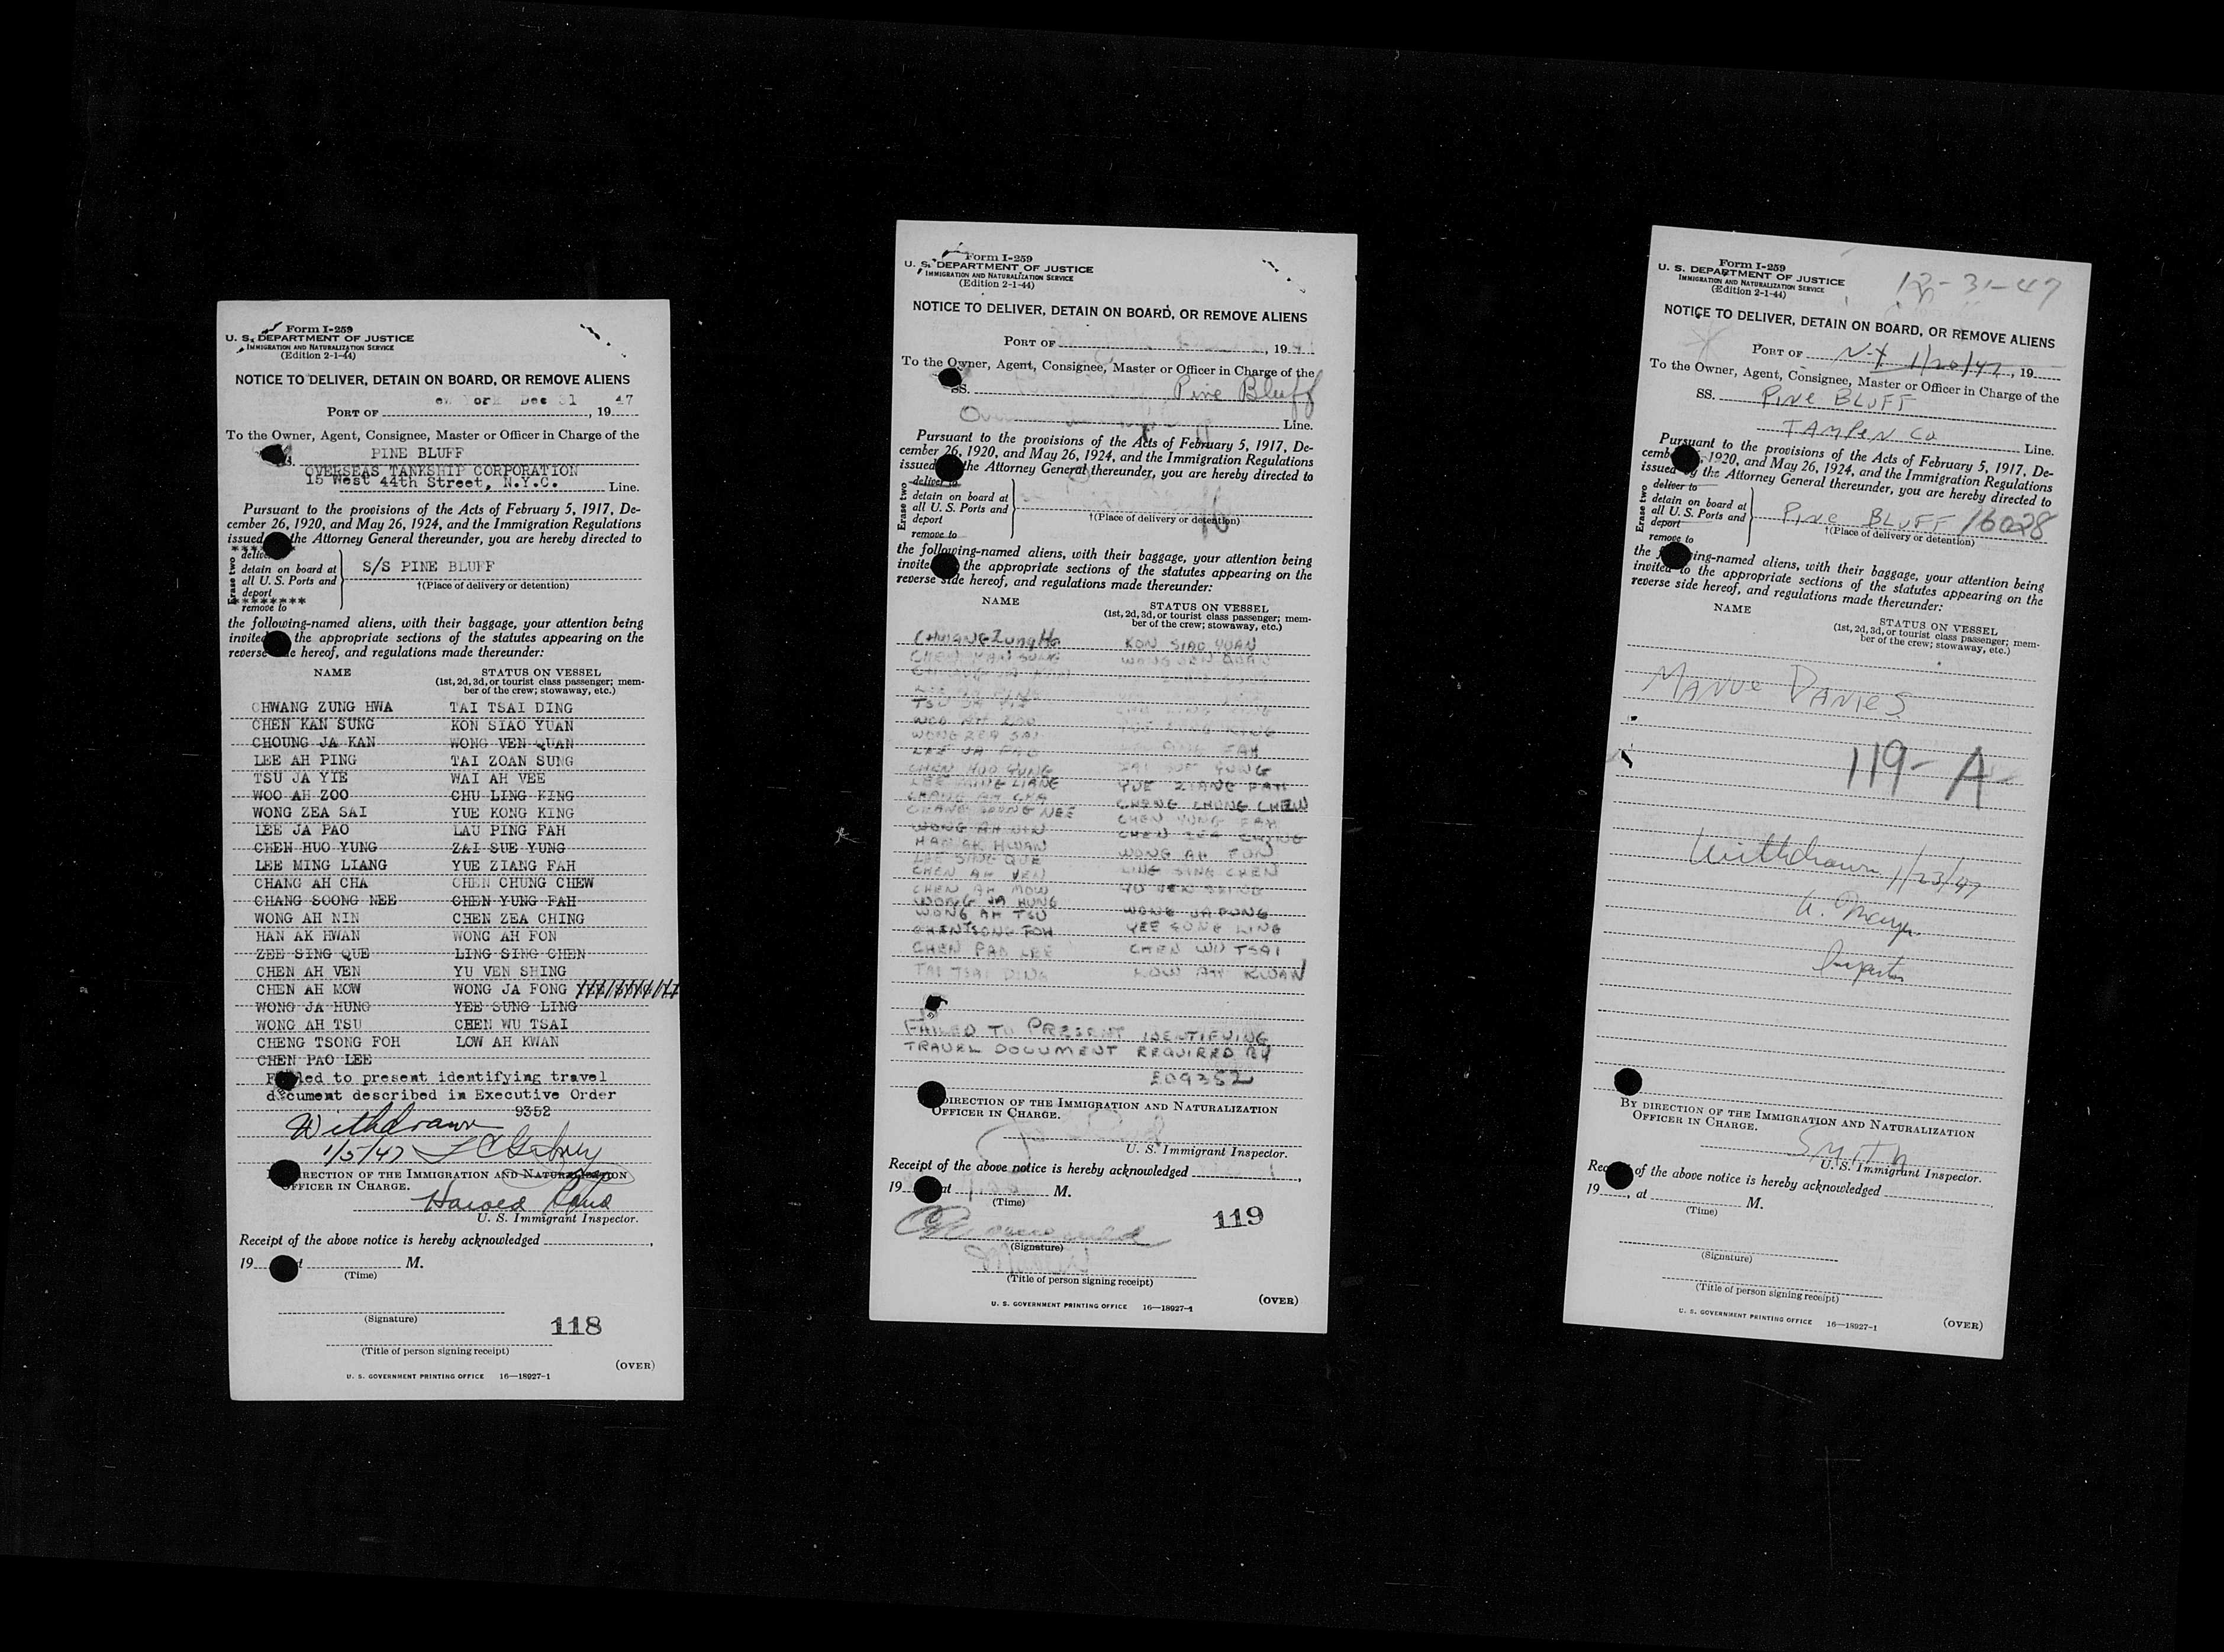 Form I-259
U. S. DEPARTMENT OF JUSTICE
IMMIGRATION AND NATURALIZATION SERVICE
(Edition 2-1-44)
NOTICE TO DELIVER, DETAIN ON BOARD, OR REMOVE ALIENS
PORT OF ew ork Dec 31, 1947
To the Owner, Agent, Consignee, Master or Officer in Charge of the
PINE BLUFF
OVERSEAS TANKSHIP CORPORATION
15 West 44th Street, N.Y.C. Line.
Pursuant to the provisions of the Acts of February 5, 1917, De-
cember 26, 1920, and May 26, 1924, and the Immigration Regulations
issued the Attorney General thereunder, you are hereby directed to
Erase two
detain on board at
all U. S. Ports and
deport
remove to
S/S PINE BLUFF
†(Place of delivery or detention)
the following-named aliens, with their baggage, your attention being
invited the appropriate sections of the statutes appearing on the
reverse hereof, and regulations made thereunder:
NAME STATUS ON VESSEL
(1st, 2d, 3d, or tourist class passenger; mem-
ber of the crew; stowaway, etc.)
CHWANG ZUNG HWA TAI TSAI DING
CHEN KAN SUNG KON SIAO YUAN
CHOUNG JA KAN WONG VEN QUAN
LEE AH PING TAI ZOAN SUNG
TSU JA YIE WAI AH VEE
WOO AH ZOO CHU LING KING
WONG ZEA SAI YUE KONG KING
LEE JA PAO LAU PING FAH
CHEN HUO YUNG ZAI SUE YUNG
LEE MING LIANG YUE ZIANG FAH
CHANG AH CHA CHEN CHUNG CHEW
CHANG SOONG NEE CHEN YUNG FAH
WONG AH NIN CHEN ZEA CHING
HAN AK HWAN WONG AH FON
ZEE SING QUE LING SING CHEN
CHEN AH VEN YU VEN SHING
CHEN AH MOW WONG JA FONG
WONG JA HUNG YEE SUNG LING
WONG AH TSU CHEN WU TSAI
CHENG TSONG FOH LOW AH KWAN
CHEN PAO LEE
Failed to present identifying travel
document described in Executive Order
9352
Withdrawn
1/5/47
DIRECTION OF THE IMMIGRATION AND NATURALIZATION
OFFICER IN CHARGE.
Harold
U. S. Immigrant Inspector.
Receipt of the above notice is hereby acknowledged
19 M.
(Time)
(Signature)
118
(Title of person signing receipt)
(OVER)
U. S. GOVERNMENT PRINTING OFFICE 16—18927-1
Form I-259
U. S. DEPARTMENT OF JUSTICE
IMMIGRATION AND NATURALIZATION SERVICE
(Edition 2-1-44)
NOTICE TO DELIVER, DETAIN ON BOARD, OR REMOVE ALIENS
PORT OF , 19
To the Owner, Agent, Consignee, Master or Officer in Charge of the
SS. Pine Bluff
Line.
Pursuant to the provisions of the Acts of February 5, 1917, De-
cember 26, 1920, and May 26, 1924, and the Immigration Regulations
issued the Attorney General thereunder, you are hereby directed to
Erase two
deliver to
detain on board at
all U. S. Ports and
deport
remove to
†(Place of delivery or detention)
the following-named aliens, with their baggage, your attention being
invited the appropriate sections of the statutes appearing on the
reverse side hereof, and regulations made thereunder:
NAME STATUS ON VESSEL
(1st, 2d, 3d, or tourist class passenger; mem-
ber of the crew; stowaway, etc.)
CHWANG Zung KON SIAO YUAN
CHEN KAN SUNG WONG VEN QUAN
TSU JA YIE
WOO AH ZOO
WONG ZEA SAI
LEE JA PAO FAH
CHEN HUO YUNG ZAI SUE YUNG
LEE MING LIANG YUE ZIANG FAH
CHANG AH CHA CHENG CHUNG CHEW
CHANG SOONG NEE CHEN YUNG FAH
WONG AH NIN CHEN ZEA CHING
HAN AK HWAN WONG AH FON
ZEE SING QUE LING SING CHEN
CHEN AH VEN YU VEN SHING
CHEN AH MOW
WONG JA HUNG WONG JA FONG
WONG AH TSU YEE SUNG LING
CHEN TSONG FOH CHEN WU TSAI
CHEN PAO LEE LOW AH KWAN
TAI TSAI DING
FAILED TO PRESENT IDENTIFYING
TRAVEL DOCUMENT REQUIRED BY
EO9352
DIRECTION OF THE IMMIGRATION AND NATURALIZATION
OFFICER IN CHARGE.
U. S. Immigrant Inspector.
Receipt of the above notice is hereby acknowledged
19 at M.
(Time)
119
(Signature)
(Title of person signing receipt)
(OVER)
U. S. GOVERNMENT PRINTING OFFICE 16—18927-1
12-31-47
Form I-259
U. S. DEPARTMENT OF JUSTICE
IMMIGRATION AND NATURALIZATION SERVICE
(Edition 2-1-44)
NOTICE TO DELIVER, DETAIN ON BOARD, OR REMOVE ALIENS
PORT OF N-Y 1/20/47, 19
To the Owner, Agent, Consignee, Master or Officer in Charge of the
SS. PINE BLUFF
TAMPEN Co Line.
Pursuant to the provisions of the Acts of February 5, 1917, De-
cember , 1920, and May 26, 1924, and the Immigration Regulations
issued by the Attorney General thereunder, you are hereby directed to
Erase two
deliver to
detain on board at
all U. S. Ports and
deport
remove to
PINE BLUFF 16028
†(Place of delivery or detention)
the following-named aliens, with their baggage, your attention being
invited to the appropriate sections of the statutes appearing on the
reverse side hereof, and regulations made thereunder:
NAME STATUS ON VESSEL
(1st, 2d, 3d, or tourist class passenger; mem-
ber of the crew; stowaway, etc.)
MANUE DANIES
119-A-
Withdrawn 1/23/47
Inspector
BY DIRECTION OF THE IMMIGRATION AND NATURALIZATION
OFFICER IN CHARGE.
SMITH
U. S. Immigrant Inspector.
Receipt of the above notice is hereby acknowledged
19 , at M.
(Time)
(Signature)
(Title of person signing receipt)
U. S. GOVERNMENT PRINTING OFFICE 16—18927-1
(OVER)